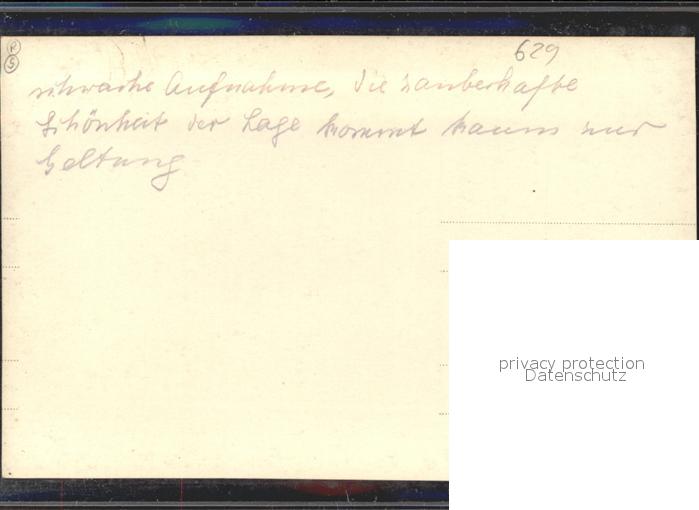 629
R
S
schwache Aufnahme, die zauberhafte
Schönheit der Lage kommt kaum zur
Geltung
privacy protection
Datenschutz